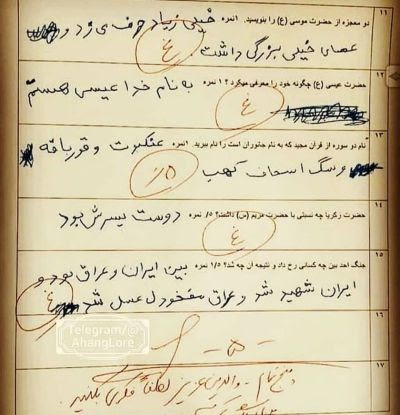 ۱۱
دو معجزه از حضرت موسی (ع) را بنویسید. ۱نمره خیلی زیاد حرف می زد و
عصای خیلی بزرگی داشت
غ
۱۲
حضرت عیسی (ع) چگونه خود را معرفی میکرد؟ ۱ نمره به نام خدا عیسی هستم
غ
۱۳
نام دو سوره از قران مجید که به نام جانوران است را نام ببرید. ۱نمره عنکبوت و قورباقه
و سگ اسحاف کهب
۰/۵
۱۴
حضرت زکریا چه نسبتی با حضرت مریم (س) داشت؟ ۰/۵ نمره دوست پسرش بود
غ
۱۵
جنگ احد بین چه کسانی رخ داد و نتیجه آن چه شد؟ ۱/۵ نمره بین ایران و عراق بود و
ایران شهید شد و عراق مفخود ل عسل شد
غ
۱۶
Telegram/@
AhangLore
-۵-
۱۷
والدین عزیز لطفاً فکری بکنید